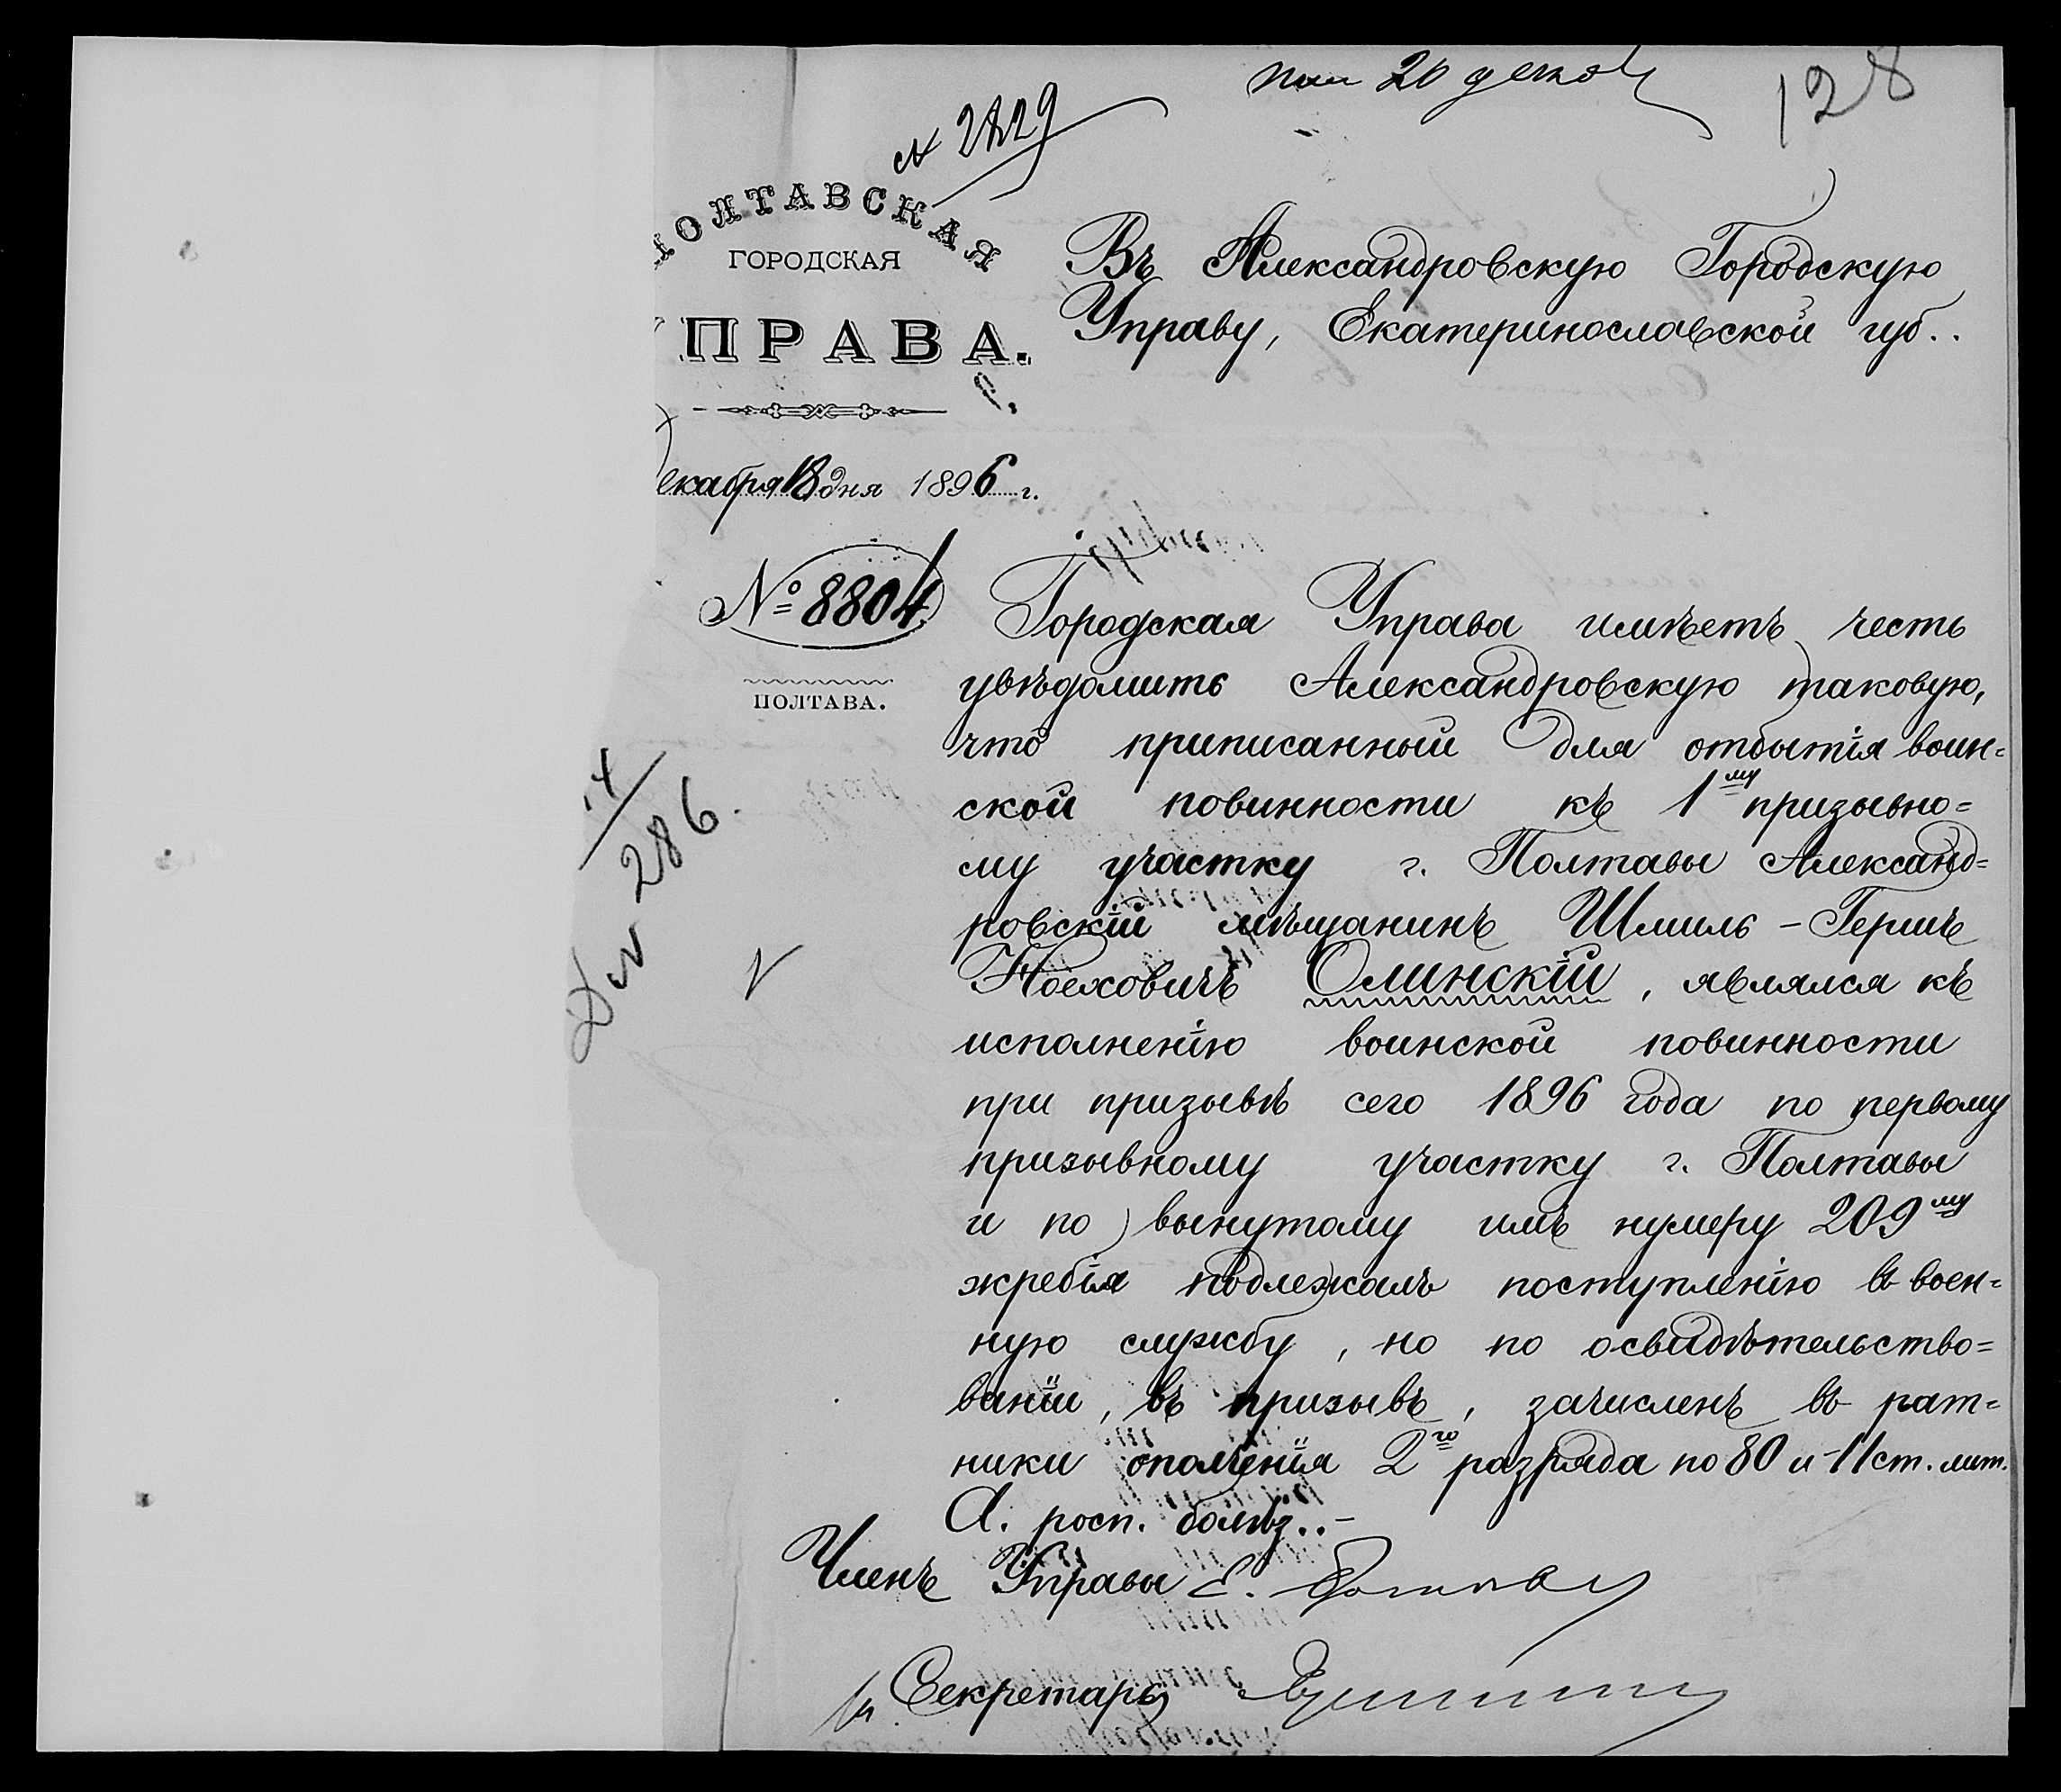 20
128
№ 2829
ПОЛТАВСКАЯ
ГОРОДСКАЯ
УПРАВА.
Декабря 18 дня 1896 г.
№ 8804
ПОЛТАВА.
14
286.
Въ Александровскую Городскую
Управу, Екатеринославской губ..
Городская Управа имѣетъ честь
увѣдомить Александровскую таковую,
что приписанный для отбытія воин=
ской повинности къ 1му призывно=
му участку г. Полтавы Александ=
ровскій мѣщанинъ Шмиль-Гершъ
Ноеховичъ Олинскій, являлся къ
исполненію воинской повинности
при призывѣ сего 1896 года по первому
призывному участку г. Полтавы
и по вынутому имъ нумеру 209му
жребія подлежалъ поступленію въ воен=
ную службу, но по освидѣтельство=
ваніи, въ призывъ, зачисленъ въ рат=
ники ополченія 2го разряда по 80 и 11 ст. лит.
А. росп. болѣз..-
Членъ Управы Е.
Секретарь